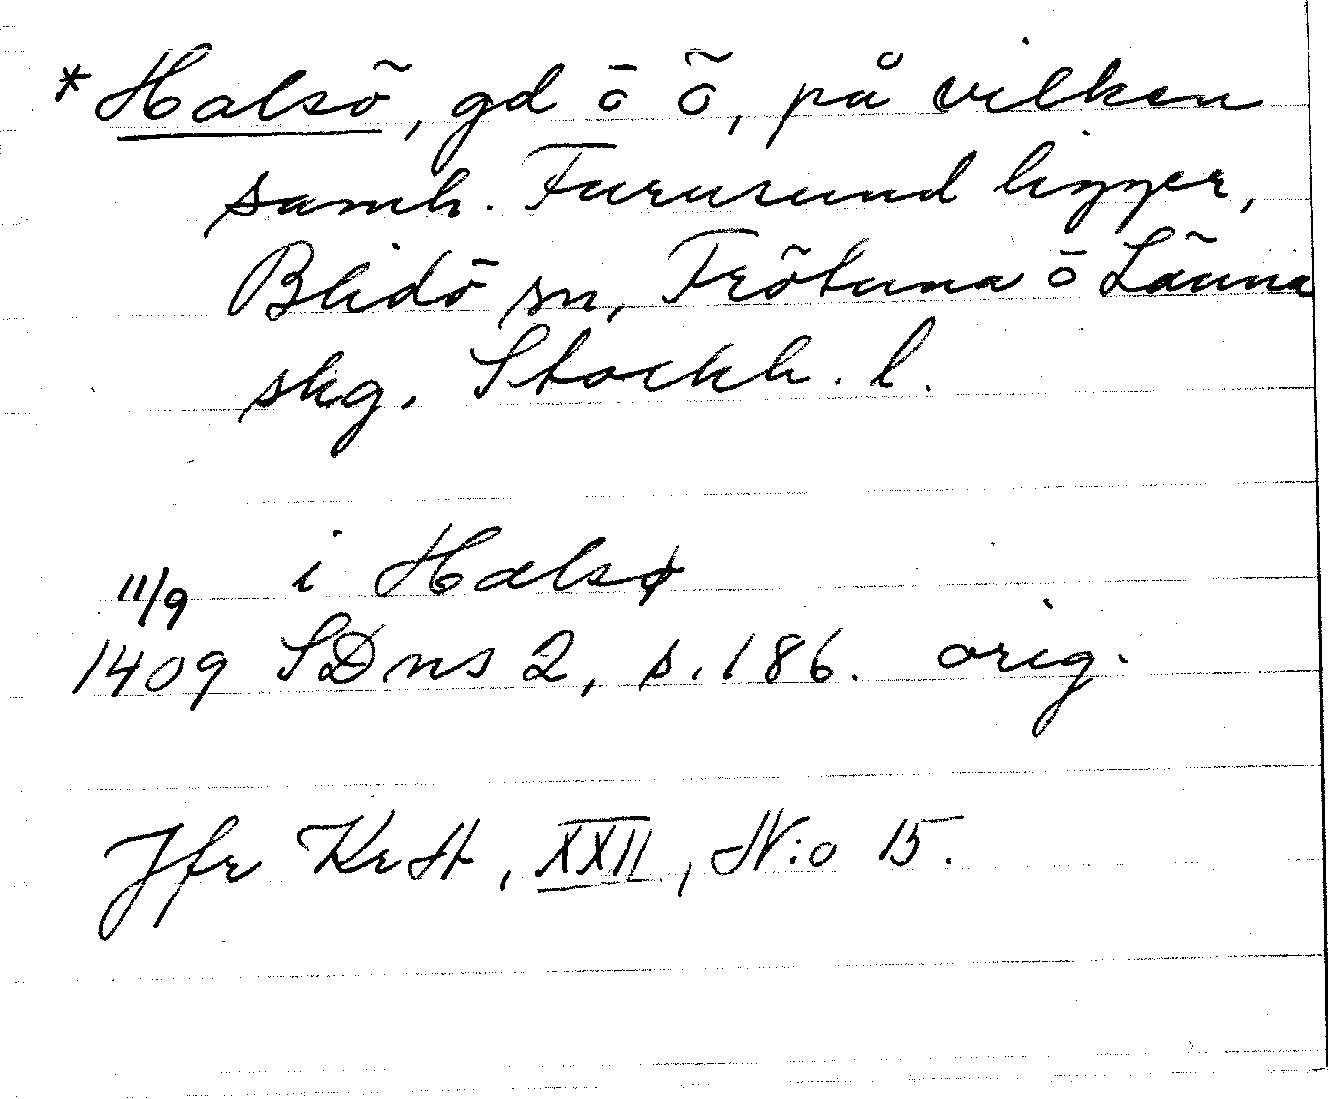 * Halsö, gd ō ö, på vilken
samh. Furusund ligger,
Blidö sn, Frötuna ō Länna
skg, Stockh. l.
i Halsø
11/9
1409 SDns 2, s. 186. orig.
Jfr KrH, XXII, N:o 15.